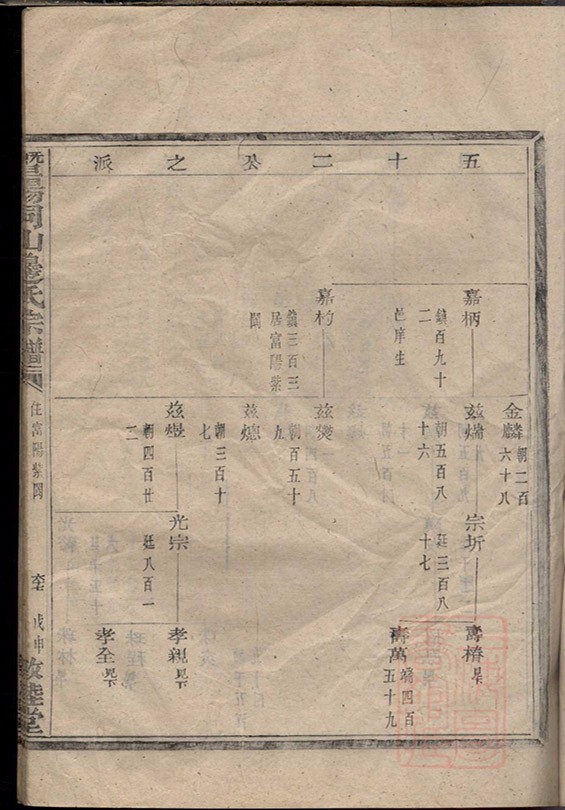 五十二公之派
金麟 朝二百六十八
嘉柄 鎮百九十二 邑庠生
茲煓 朝五百八十六
宗圻 廷三百八十七
壽椿 見下
壽萬 端四百五十九
嘉杓 鎮三百三 居富陽紫閬
茲燓 朝百五十九
茲熜 朝三百十七
茲煜 朝四百廿二
光宗 廷八百一
孝親 見下
孝全 見下
暨陽同山邊氏宗譜
住富陽紫閬
戊申
敦睦堂